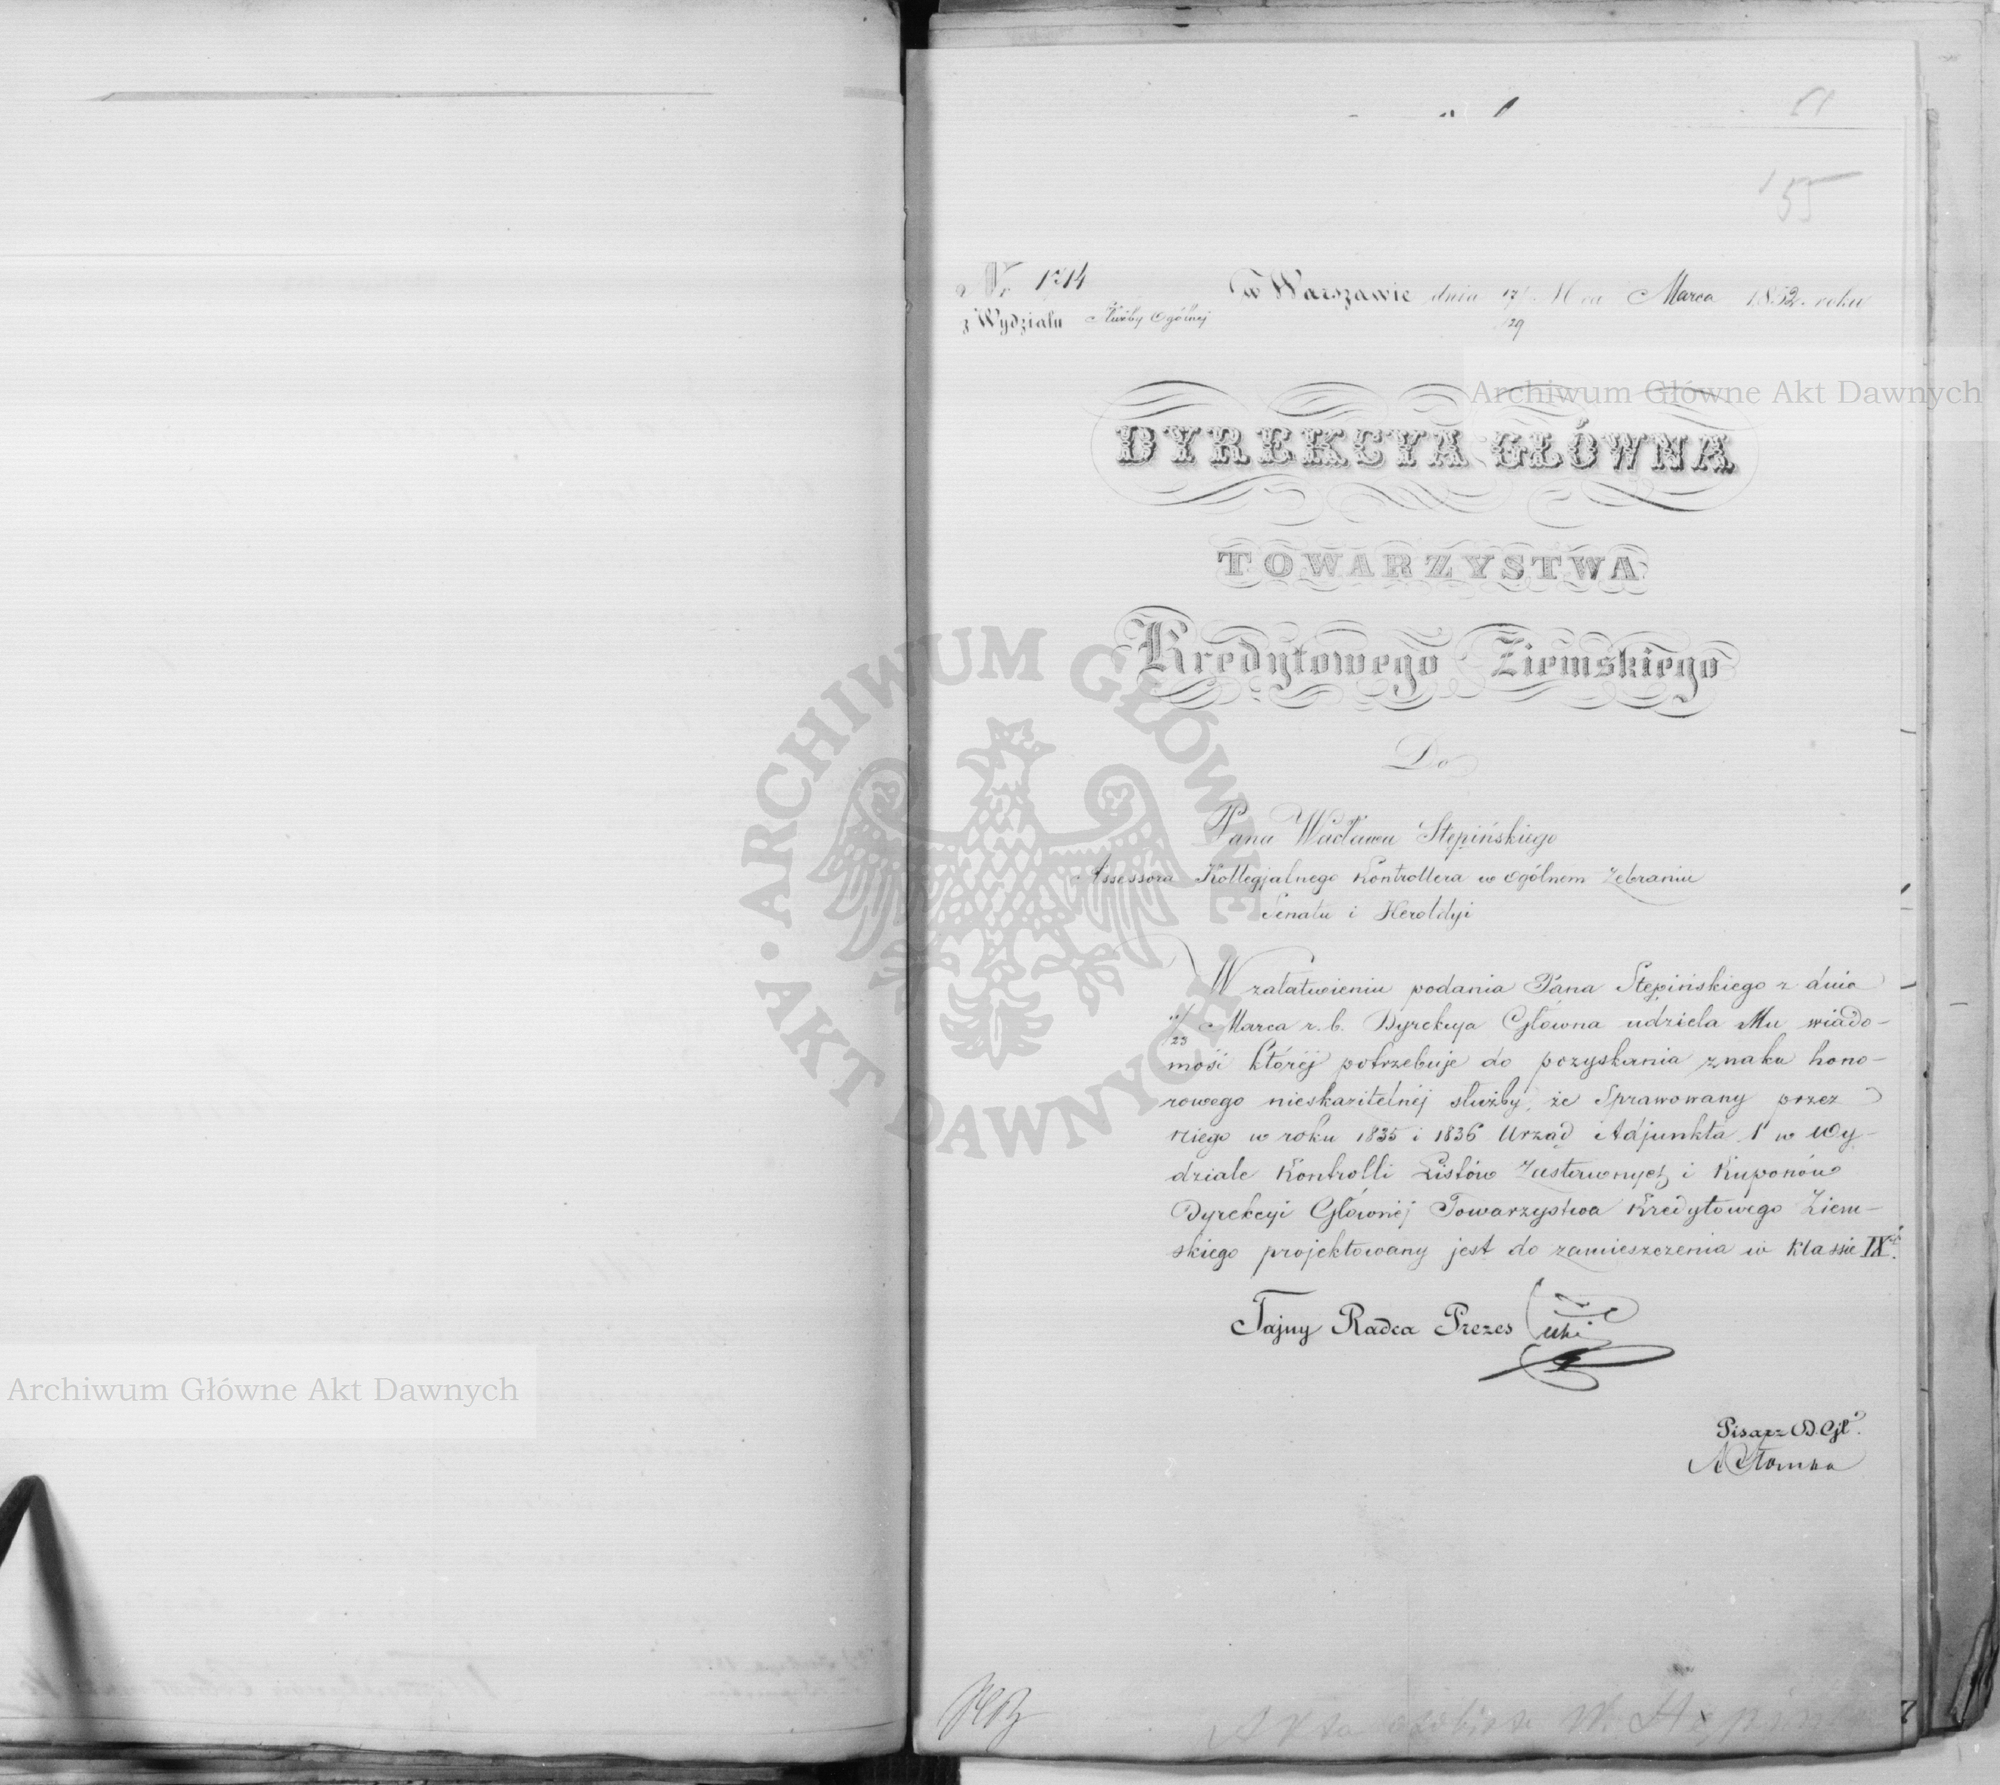 61
155
Nr 1714
z Wydziału Służby Ogólnej
w Warszawie dnia 17/29 Marca 1852 roku
DYREKCYA GŁÓWNA
TOWARZYSTWA
Kredytowego Ziemskiego
Do
Pana Wacława Stępińskiego
Assessora Kollegjalnego Kontrollera w Ogólnem Zebraniu
Senatu i Heroldyi
W załatwieniu podania Pana Stępińskiego z dnia
11/23 Marca r. b. Dyrekcya Główna udziela Mu wiado-
mość któréj potrzebuje do pozyskania znaku hono-
rowego nieskazitelnéj służby, że Sprawowany przez
niego w roku 1835 i 1836 Urząd Adjunkta 1 w Wy-
dziale Kontrolli Listów Zastawnych i Kuponów
Dyrekcyi Głównéj Towarzystwa Kredytowego Ziem-
skiego projektowany jest do zamieszczenia w Klassie IX.
Tajny Radca Prezes
Pisarz D. Gł.
Słomka
Akta osobiste W. Stępiński
Archiwum Główne Akt Dawnych
Archiwum Główne Akt Dawnych
ARCHIWUM GŁÓWNE AKT DAWNYCH